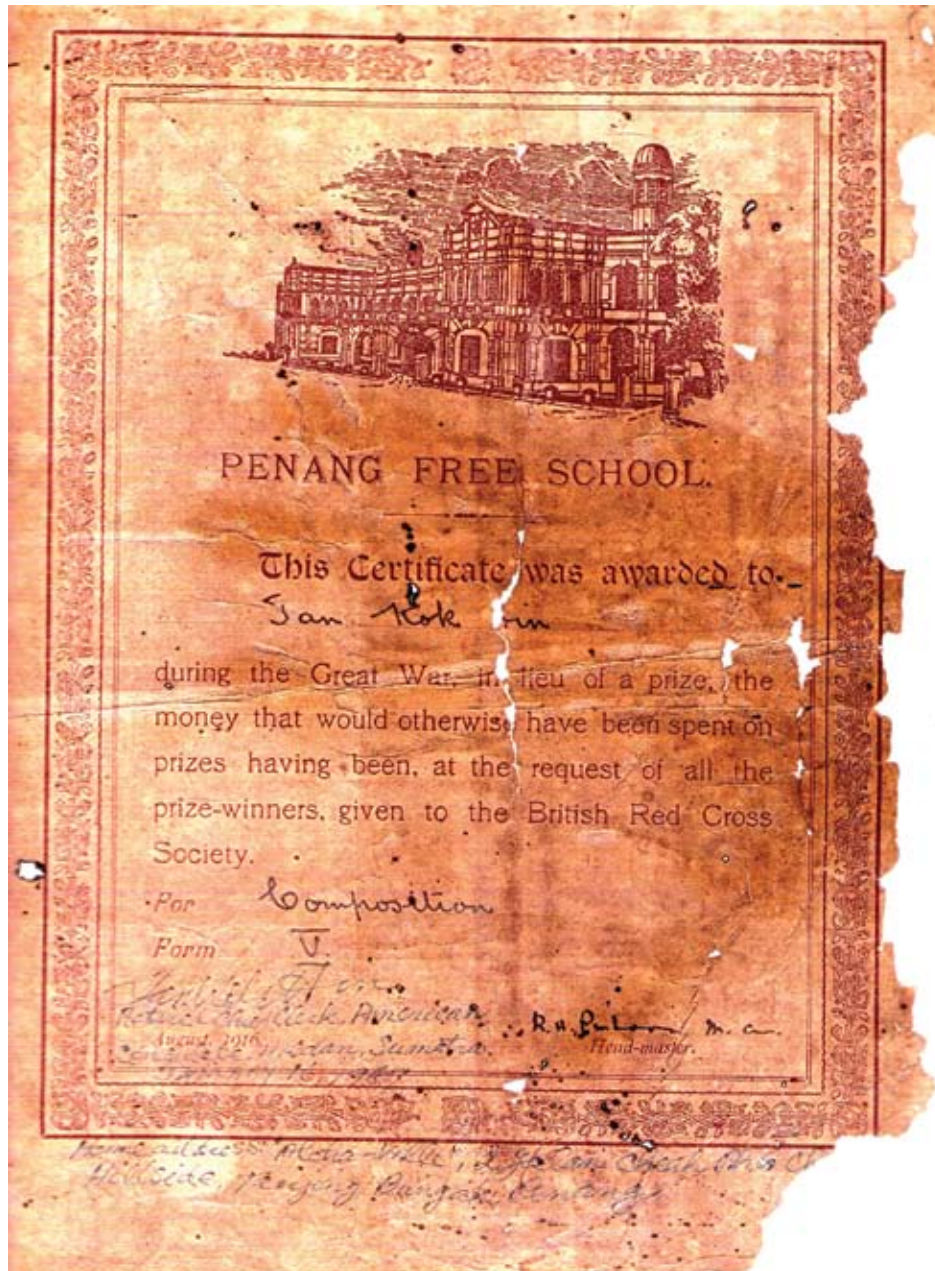 PENANG FREE SCHOOL.
This Certificate was awarded to.
Tan Kok
during the Great War, in lieu of a prize, the
money that would otherwise have been spent on
prizes having been, at the request of all the
prize-winners, given to the British Red Cross
Society.
For Composition
Form V.
Clerk American
August, 1916.
Medan, Sumatra.
M.A.
Head-master.
Home address
Hillside, Tanjong Bungah, Penang